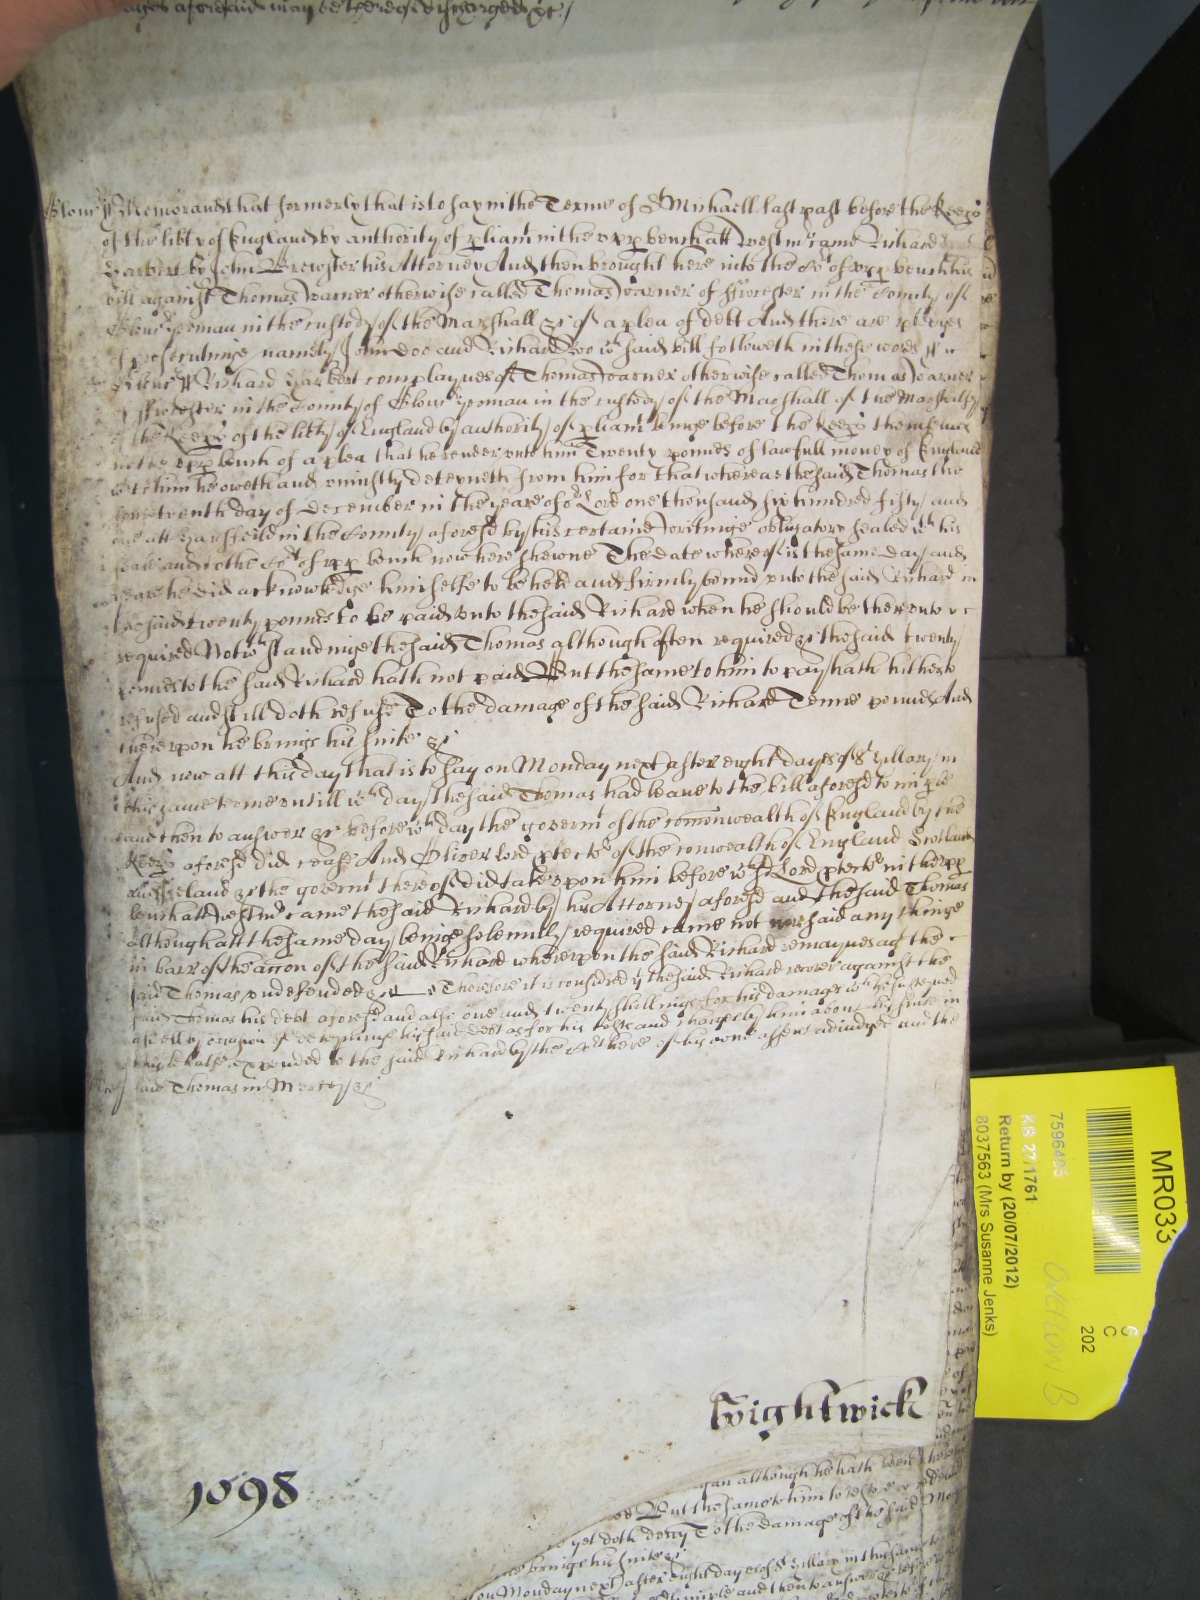 ages aforesaid may be thereof discharged &c
Glouc ss Memorand that formerly that is to say in the Terme of St Michaell last past before the Keeps
of the libty of England by authority of pliamt in the upp bench att Westmr came Richard
Harbert by John Brewster his Attorney And then brought here into the Cort of upp bench his
bill against Thomas Warner otherwise called Thomas Warner of ffrocester in the County of
Glouc yeoman in the custody of the Marshall &c of a plea of debt And there are pledges
of prosecutinge namely John Doo and Richard Roo wch said bill followeth in these words ss
Glouc ss Richard Harbert complaynes of Thomas Warner otherwise called Thomas Warner
of ffrocester in the County of Glouc yeoman in the custody of the Marshall of the Marshalsy
of the Keeps of the libty of England by authority of pliamt beinge before the Keeps themselves
in the upp bench of a plea that he render unto him Twenty pounds of lawfull money of England
wch to him he oweth and uniustly deteyneth from him for that whereas the said Thomas the
day of December in the yeare of or Lord one thousand six hundred fifty and
one att Harffeild in the County aforesd by his certaine Writinge obligatory sealed wth his
seale and to the Cort of upp bench now here shewne The date whereof is the same day and
yeare he did acknowledge himselfe to be held and firmly bound unto the said Richard in
the said twenty pounds to be paid unto the said Richard when he should be thereunto
required Notwthstandinge the said Thomas although often required &c the said twenty
pounds to the said Richard hath not paid But the same to him to pay hath hitherto
refused and still doth refuse To the damage of the said Richard Tenne pounds And
thereupon he brings his suite &c
And now att this day that is to say on Monday next after eight dayes of St Hillary in
this same terme untill wch day the said Thomas had leave to the bill aforesd to imple
and then to answer &c before wch day the govermt of the comonwealth of England by the
Keeps aforesd did cease And Oliver lord ptector of the comwealth of England Scotland
and Ireland &c the govermt thereof did take upon him before wch sd Lord ptector in the upp
bench att Westmr came the said Richard by his Attorney aforesd and the said Thomas
although att the same day beinge solemnly required came not nor said any thinge
in barr of the accon of the said Richard whereupon the said Richard remaynes agt the
said Thomas undefended &c Therefore it is considred yt the said Richard recover against the
said Thomas his debt aforesd and also one and twenty shillings for his damages wch he susteyned
aswell by occasion of deteyninge his said debt as for his costs and charges by him about his suite in
this behalfe expended to the said Richard by the Cort here of his owne assent adiudged and the
said Thomas in Mercy &c
Hightwick
1098
gan although he hath been
ed But the same to him to
yet doth deny To the damage of the said
he brings his suite &c
on Monday next after eight dayes of St Hillary in this same
imple and then to answer
MR033
7596495
KB 27/1761
Return by (20/07/2012)
8037563 (Mrs Susanne Jenks)
C
202
OVERFLOW B